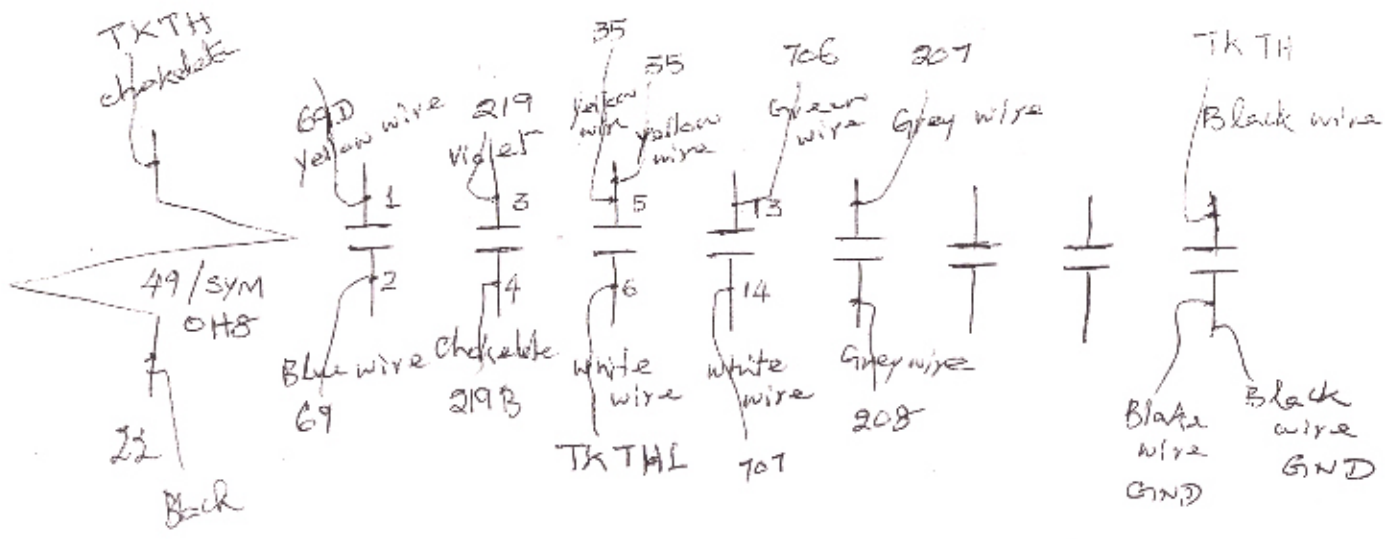 TKTH
chokelet
69D
yellow wire
219
violet
35
yellow
wire
55
yellow
wire
706
Green
wire
207
Grey wire
TK TH
Black wire
1
3
5
13
49/SYM
OHS
2
4
6
14
Blue wire
69
Chokelete
219B
white
wire
TKTHL
white
wire
707
Grey wire
208
Blake
wire
GND
Black
wire
GND
22
Black